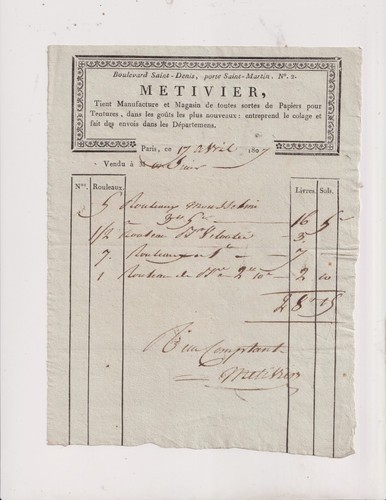 Boulevard Saint-Denis, porte Saint-Martin, N°. 2.
METIVIER,
Tient Manufacture et Magasin de toutes sortes de Papiers pour
Tentures, dans les goûts les plus nouveaux: entreprend le colage et
fait des envois dans les Départemens.
Paris, ce 17 Avril 1807
Vendu à M
Nos. Rouleaux. Livres. Sols.
5 Rouleaux 16 5
1/2 Rouleau 3
7. Rouleaux 7
1 Rouleau de 2 10
28 15
Comptant
Metivier